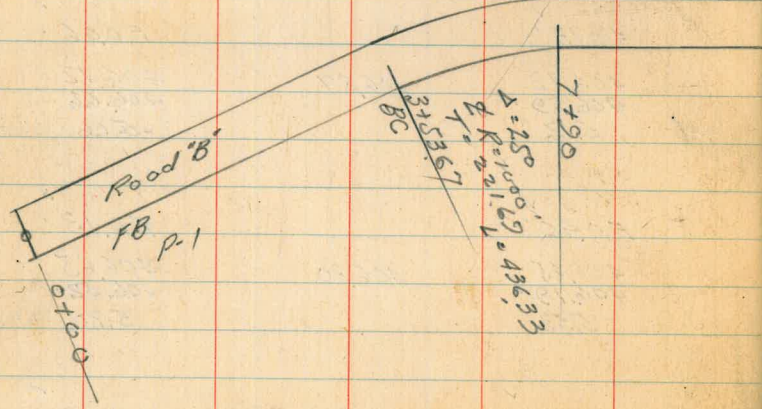 Road "B"
FB P-1
0+00
3+53.67
BC
Δ=25°
℄ R=1000'
T=221.69 L=436.33
7+90